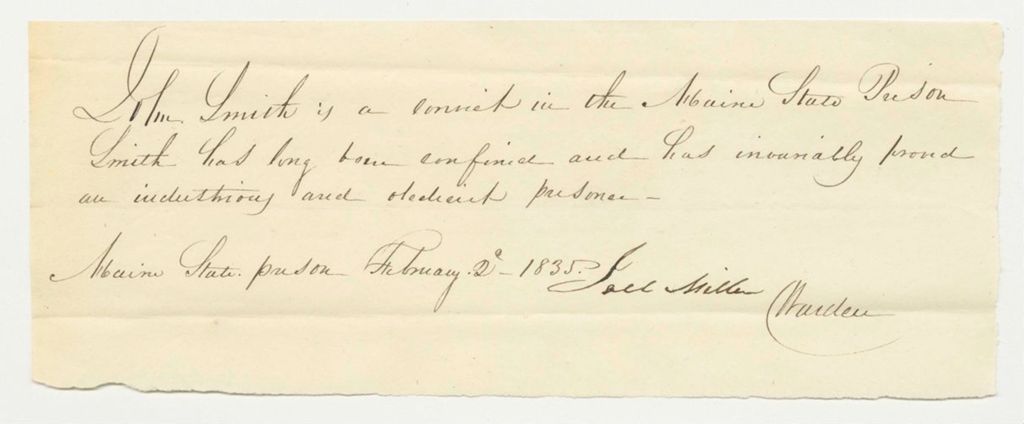 John Smith is a convict in the Maine State Prison
Smith has long been confined and has invariably proved
an industrious and obedient prisoner –
Maine State prison February 2d – 1835. Joel Miller
Warden